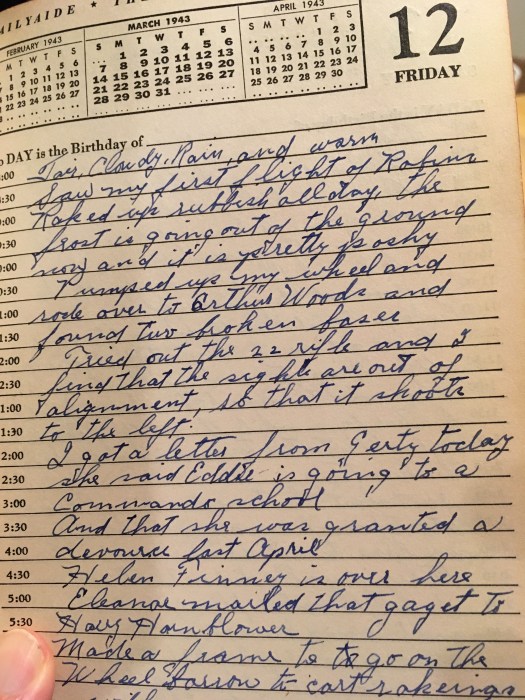 AILYAIDE ★ TH
FEBRUARY 1943
M T W T F S
1 2 3 4 5 6
8 9 10 11 12 13
15 16 17 18 19 20
22 23 24 25 26 27
MARCH 1943
S M T W T F S
1 2 3 4 5 6
7 8 9 10 11 12 13
14 15 16 17 18 19 20
21 22 23 24 25 26 27
28 29 30 31
APRIL 1943
S M T W T F S
1 2 3
4 5 6 7 8 9 10
11 12 13 14 15 16 17
18 19 20 21 22 23 24
25 26 27 28 29 30
12
FRIDAY
DAY is the Birthday of
:00 Fair, Cloudy, Rain, and warm
:30 Saw my first flight of Robins
:00 Raked up rubbish all day, the
:30 frost is going out of the ground
:00 now and it is pretty poshy
0:30 Pumped up my wheel and
1:00 rode over to Arthur Woods and
1:30 found two broken bases
2:00 Tried out the 22 rifle and I
2:30 find that the sights are out of
1:00 alignment, so that it shoots
1:30 to the left.
2:00 I got a letter from Gerty today
2:30 she said Eddie is going to a
3:00 Commando school
3:30 And that she was granted a
4:00 devource last April
4:30 Helen Finney is over here
5:00 Eleanor mailed that gaget to
5:30 Harry Hornblower
Made a frame to to go on the
Wheel Barrow to cart rakeings
with